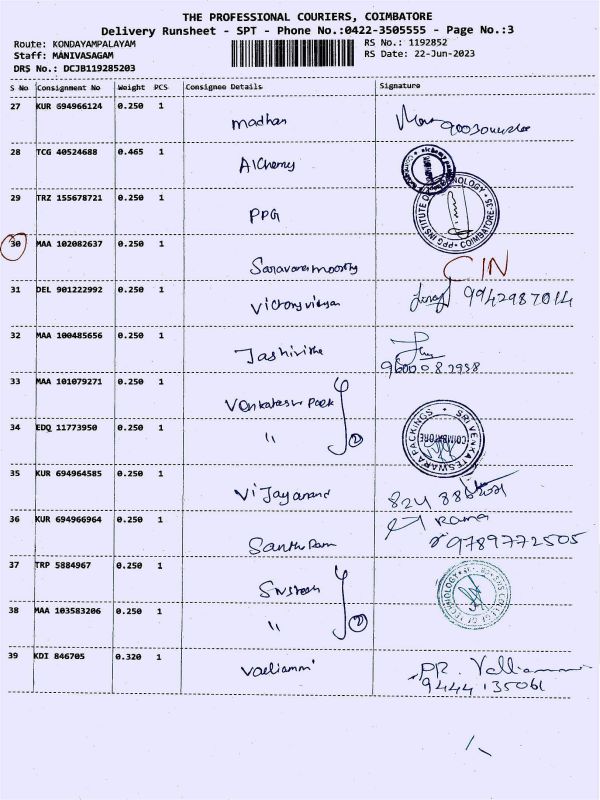 THE PROFESSIONAL COURIERS, COIMBATORE
Delivery Runsheet - SPT - Phone No.:0422-3505555 - Page No.:3
Route: KONDAYAMPALAYAM
RS No.: 1192852
Staff: MANIVASAGAM
RS Date: 22-Jun-2023
DRS No.: DCJB119285203
S No Consignment No Weight PCS Consignee Details Signature
27 KUR 694966124 0.250 1 Madhan
28 TCG 40524688 0.465 1 Alchemy
29 TRZ 155678721 0.250 1 PPG
PPG INSTITUTE OF TECHNOLOGY COIMBATORE-35
30 MAA 102082637 0.250 1 Saravanamoorthy CIN
31 DEL 901222992 0.250 1 9942987014
32 MAA 100485656 0.250 1
9600082958
33 MAA 101079271 0.250 1
34 EDQ 11773950 0.250 1 " 2
SRI VENKATESWARA PACKINGS COIMBATORE
35 KUR 694964585 0.250 1 Vijayanand
36 KUR 694966964 0.250 1 Rama
9789772505
37 TRP 5884967 0.250 1
COLLEGE OF TECHNOLOGY
38 MAA 103583206 0.250 1 " 2
39 KDI 846705 0.320 1 Valliammi PR. Valliammi
9444135061